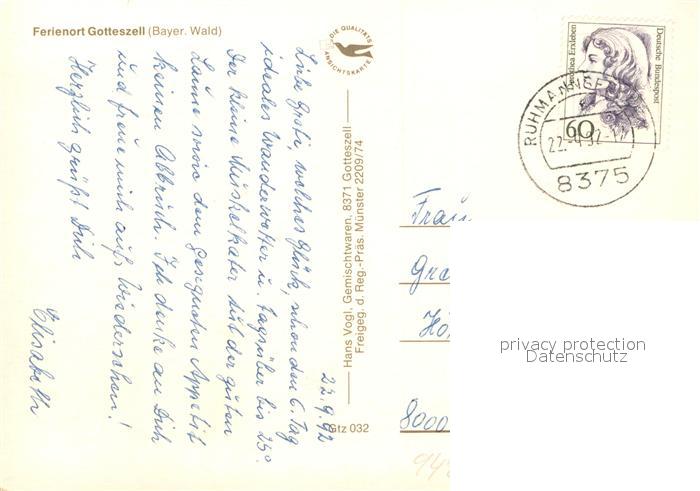 Ferienort Gotteszell (Bayer. Wald)
DIE QUALITÄTS
ANSICHTSKARTE
22.9.92
Liebe Grete, welches Glück, schon den 6. Tag
ideales Wanderwetter u. tagsüber bis 25°.
Der kleine Muskelkater tut der guten
Laune sowie dem gesegneten Appetit
keinen Abbruch. Ich denke an Dich
und freue mich aufs Wiedersehen!
Herzlich grüßt Dich
Elisabeth
Hans Vogl, Gemischtwaren, 8371 Gotteszell
Freigeg. d. Reg.-Präs. Münster 2209/74
Gtz 032
Dorothea Erxleben
Deutsche Bundespost
60
RUHMANNSFELDEN
22.-9.92-17
8375
Frau
Gre
Hö
8000
privacy protection
Datenschutz